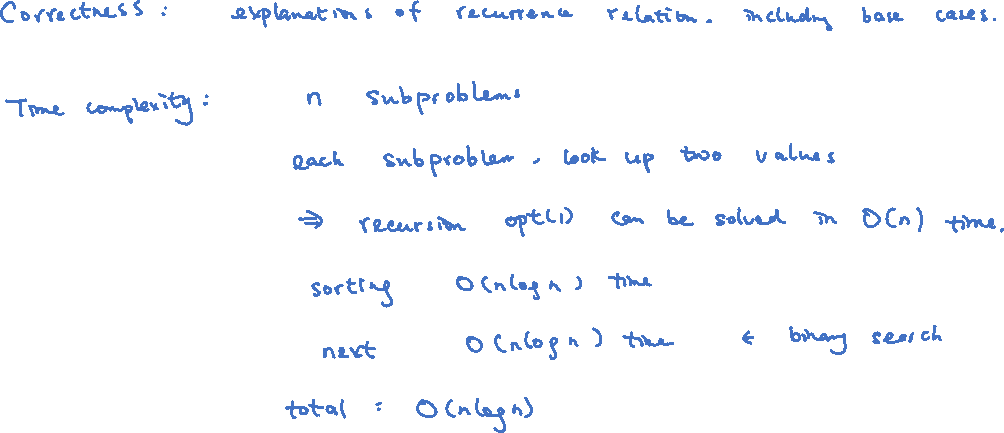 Correctness : explanations of recurrence relation. including base cases.
Time complexity : n subproblems
each subproblem, look up two values
⇒ recursion opt(1) can be solved in O(n) time.
sorting O(nlogn) time
next O(nlogn) time ← binary search
total : O(nlogn)